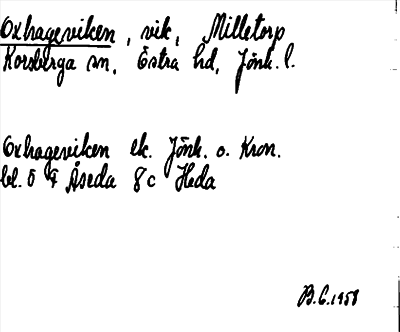 Oxhageviken, vik, Milletorp
Korsberga sn, Östra hd, Jönk. l.
Oxhageviken ek. Jönk. o. Kron.
bl. 5 9 Åseda 8c Heda
B.C. 1958